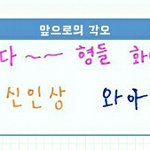 앞으로의 각오
다 ~~ 형들 화
신인상 와아